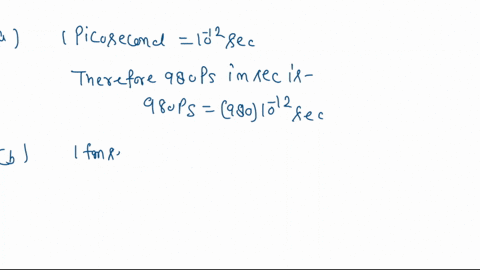 a) 1 Picosecond = 10^-12 sec
Therefore 980Ps in sec is-
980Ps = (980) 10^-12 sec
(b) 1 fms.